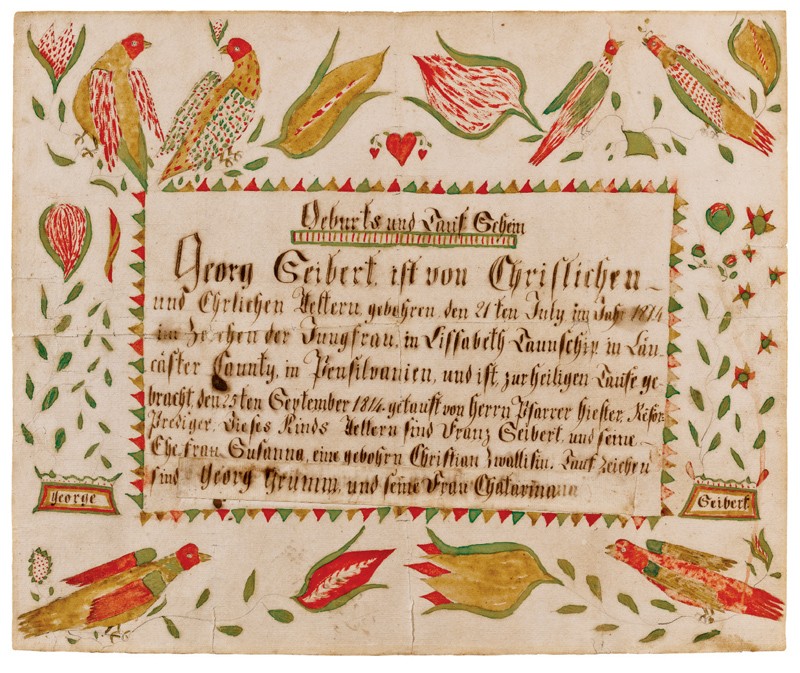 Geburts und Tauf Schein
Georg Seibert ist von Christlichen
und Ehrlichen Aeltern gebohren den 21ten July im Jahr 1814
im Zeichen der Jungfrau, in Lissabeth Taunschip in Län-
cäster Caunty, in Pensilvanien, und ist zur heiligen Taufe ge-
bracht den 25ten September 1814 getauft von Herrn Pfarrer Hiester, Refor.
Prediger. Dieses Kinds Aeltern sind Franz Seibert, und seine
Ehe frau Susanna, eine gebohrn Christian Zwallisin. Tauf Zeichen
sind Georg Grumm, und seine Frau Chatarinana
George
Seibert